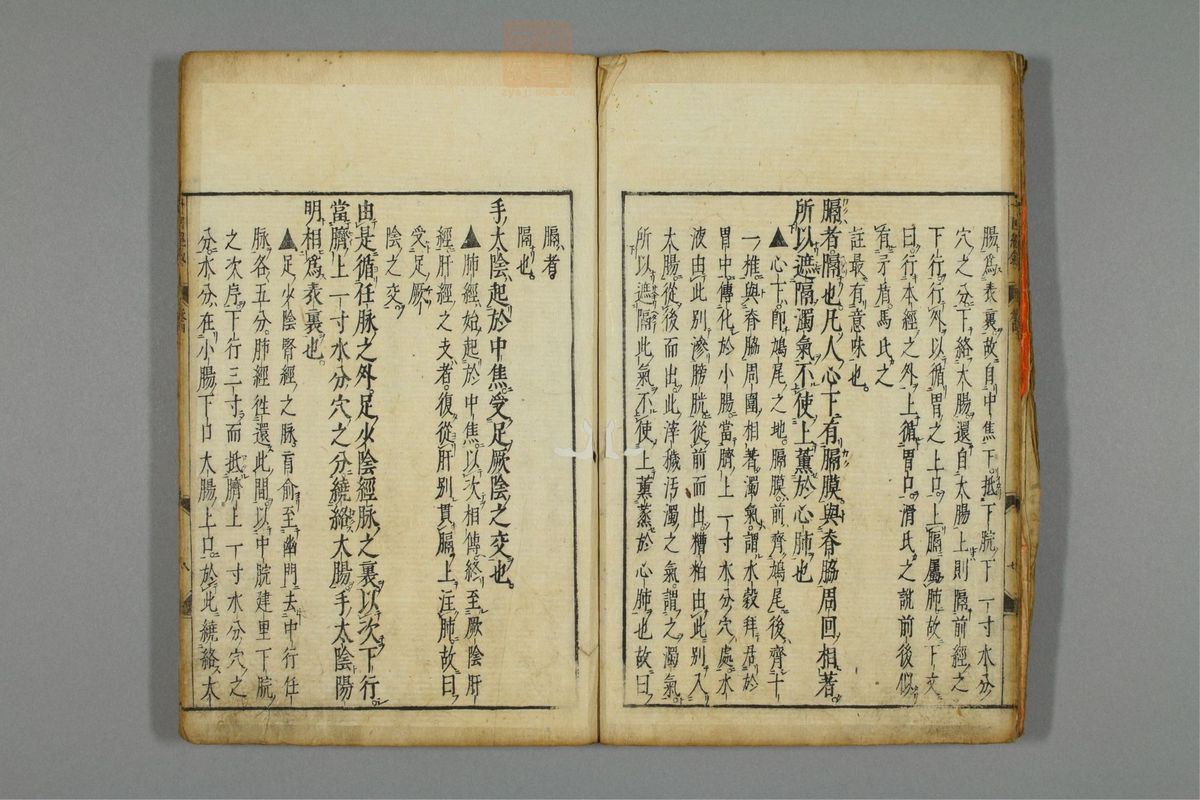 腸爲表裏故自中焦下抵下脘下一寸水分
穴之分下絡大腸還自大腸上則隔前經之
下行行外以循胃之上口上膈屬肺故下文
曰行本經之外上循胃口滑氏之說前後似
有矛盾馬氏之
註最有意味也
膈者隔也凡人心下有膈膜與脊脇周回相著
所以遮隔濁氣不使上薰於心肺也
▲心下即鳩尾之地膈膜前齊鳩尾後齊十
一椎與脊脇周圍相著濁氣謂水穀拜居於
胃中傳化於小腸當臍上一寸水分穴處水
液由此別滲膀胱從前而出糟粕由此別入
大腸從後而出此滓穢汚濁之氣謂之濁氣
所以遮隔此氣不使上薫蒸於心肺也故曰
膈者
隔也
手太陰起於中焦受足厥陰之交也
▲肺經始起於中焦以次相傳終至厥陰肝
經肝經之支者復從肝別貫膈上注肺故曰
受足厥
陰之交
由是循任脉之外足少陰經脉之裏以次下行
當臍上一寸水分穴之分繞絡大腸手太陰陽
明相爲表裏也
▲足少陰腎經之脉肓俞至幽門去中行任
脉各五分肺經徃還此間以中脘建里下脘
之次序下行三寸而抵臍上一寸水分穴之
分水分在小腸下口大腸上口於此繞絡大